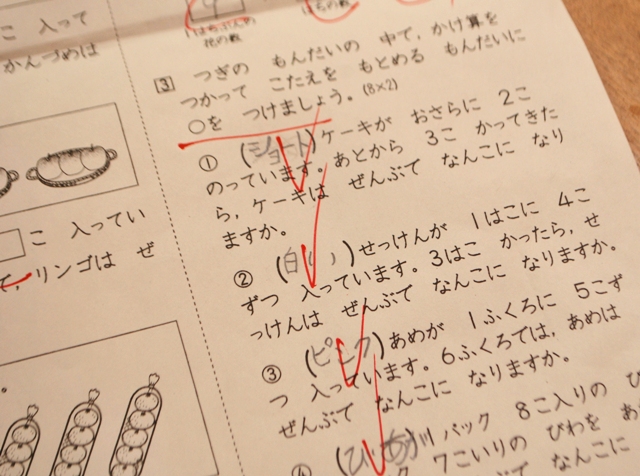 こ 入って
かんづめは
こ 入ってい
リンゴは ぜ
1はちぶんの
花の数
はちの数
3 つぎの もんだいの 中で,かけ算を
つかって こたえを もとめる もんだいに
○を つけましょう。(8×2)
① (ショート)ケーキが おさらに 2こ
のっています。あとから 3こ かってきた
ら,ケーキは ぜんぶで なんこに なり
ますか。
② (白い)せっけんが 1はこに 4こ
ずつ 入っています。3はこ かったら,せ
っけんは ぜんぶで なんこに なりますか。
③ (ピンク)あめが 1ふくろに 5こず
つ 入っています。6ふくろでは,あめは
ぜんぶで なんこに なりますか。
④ パック 8こ入りの び
ク 7こいりの びわを あ
て なんこに